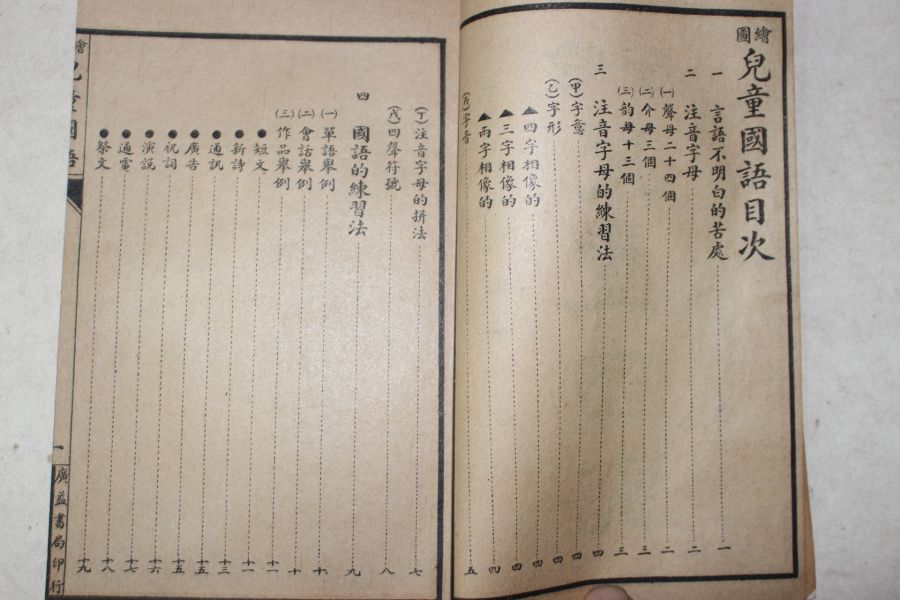 繪圖兒童國語目次
一 言語不明白的苦處 一
二 注音字母 二
㈠聲母二十四個 二
㈡介母三個 三
㈢韵母十三個 三
三 注音字母的練習法 四
(甲)字意 四
(乙)字形 四
▲四字相像的 四
▲三字相像的 四
▲兩字相像的 四
(丙)字音 五
(丁)注音字母的拼法 七
(戊)四聲符號 八
四 國語的練習法 九
㈠單語舉例 十
㈡會話舉例 十
㈢作品舉例 十
●短文 十一
●新詩 十一
●通訊 十三
●廣告 十五
●祝詞 十五
●演説 十六
●通電 十七
●祭文 十九
繪 兒童國語
一
廣益書局印行